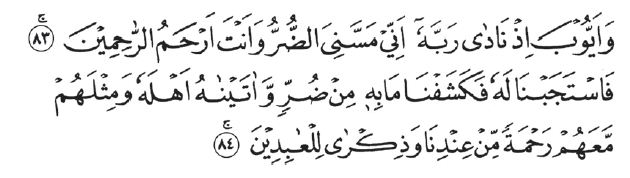 وَاَيُّوْبَ اِذْ نَادٰى رَبَّهٗٓ اَنِّيْ مَسَّنِيَ الضُّرُّ وَاَنْتَ اَرْحَمُ الرّٰحِمِيْنَ ۚ ٨٣
فَاسْتَجَبْنَا لَهٗ فَكَشَفْنَا مَا بِهٖ مِنْ ضُرٍّ وَّاٰتَيْنٰهُ اَهْلَهٗ وَمِثْلَهُمْ
مَّعَهُمْ رَحْمَةً مِّنْ عِنْدِنَا وَذِكْرٰى لِلْعٰبِدِيْنَ ۚ ٨٤